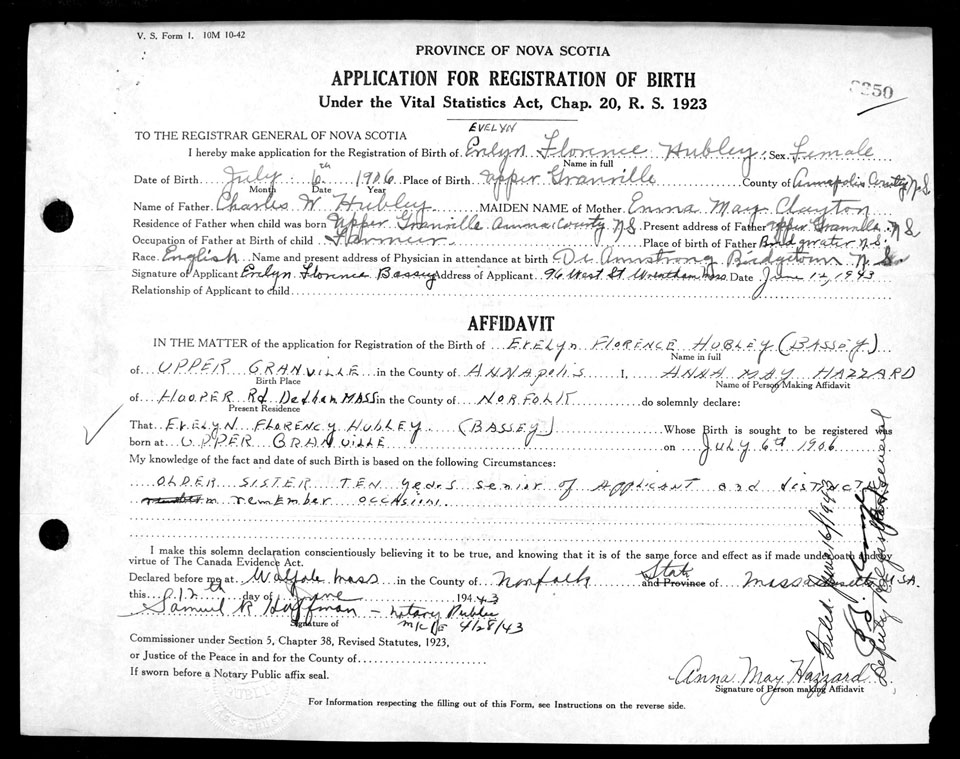 V. S. Form 1. 10M 10-42
PROVINCE OF NOVA SCOTIA
APPLICATION FOR REGISTRATION OF BIRTH
Under the Vital Statistics Act, Chap. 20, R. S. 1923
TO THE REGISTRAR GENERAL OF NOVA SCOTIA
EVELYN
I hereby make application for the Registration of Birth of Evelyn Florence Hubley, Sex Female
Name in full
Date of Birth July 6th 1906 Place of Birth Upper Granville County of Annapolis County N.S.
Month Date Year
Name of Father Charles W Hubley MAIDEN NAME of Mother Emma May Clayton
Residence of Father when child was born Upper Granville Anna. County N.S. Present address of Father Upper Granville N.S
Occupation of Father at Birth of child Farmer Place of Birth of Father Bridgwater N.S.
Race English Name and present address of Physician in attendance at birth Dr. Armstrong Bridgetown N.S.
Signature of Applicant Evelyn Florence Bassey Address of Applicant 96 West St Wrentham Mass Date June 12, 1943
Relationship of Applicant to child
AFFIDAVIT
IN THE MATTER of the application for Registration of the Birth of EVELYN FLORENCE HUBLEY (BASSEY)
Name in full
of UPPER GRANVILLE in the County of ANNAPOLIS I, ANNA MAY HAZZARD
Birth Place Name of Person Making Affidavit
of HOOPER Rd Dedham MASS in the County of NORFOLK do solemnly declare:
Present Residence
That EVELYN FLORENCY HUBLEY (BASSEY) Whose Birth is sought to be registered was
born at UPPER GRANVILLE on JULY 6th 1906
My knowledge of the fact and date of such Birth is based on the following Circumstances:
OLDER SISTER TEN years senior of Applicant and DISTINCTLY
remember OCCASION.
I make this solemn declaration conscientiously believing it to be true, and knowing that it is of the same force and effect as if made under oath and by
virtue of The Canada Evidence Act.
Declared before me at Walpole Mass in the County of Norfolk State and Province of Massachusetts USA.
this 12th day of June 194443
Samuel R Huffman - Notary Public
Signature of
4/28/43
Commissioner under Section 5, Chapter 38, Revised Statutes, 1923,
or Justice of the Peace in and for the County of
If sworn before a Notary Public affix seal.
Anna May Hazzard
Signature of Person making Affidavit
For Information respecting the filling out of this Form, see Instructions on the reverse side.
Filed June 16/1943
Deputy Registrar General